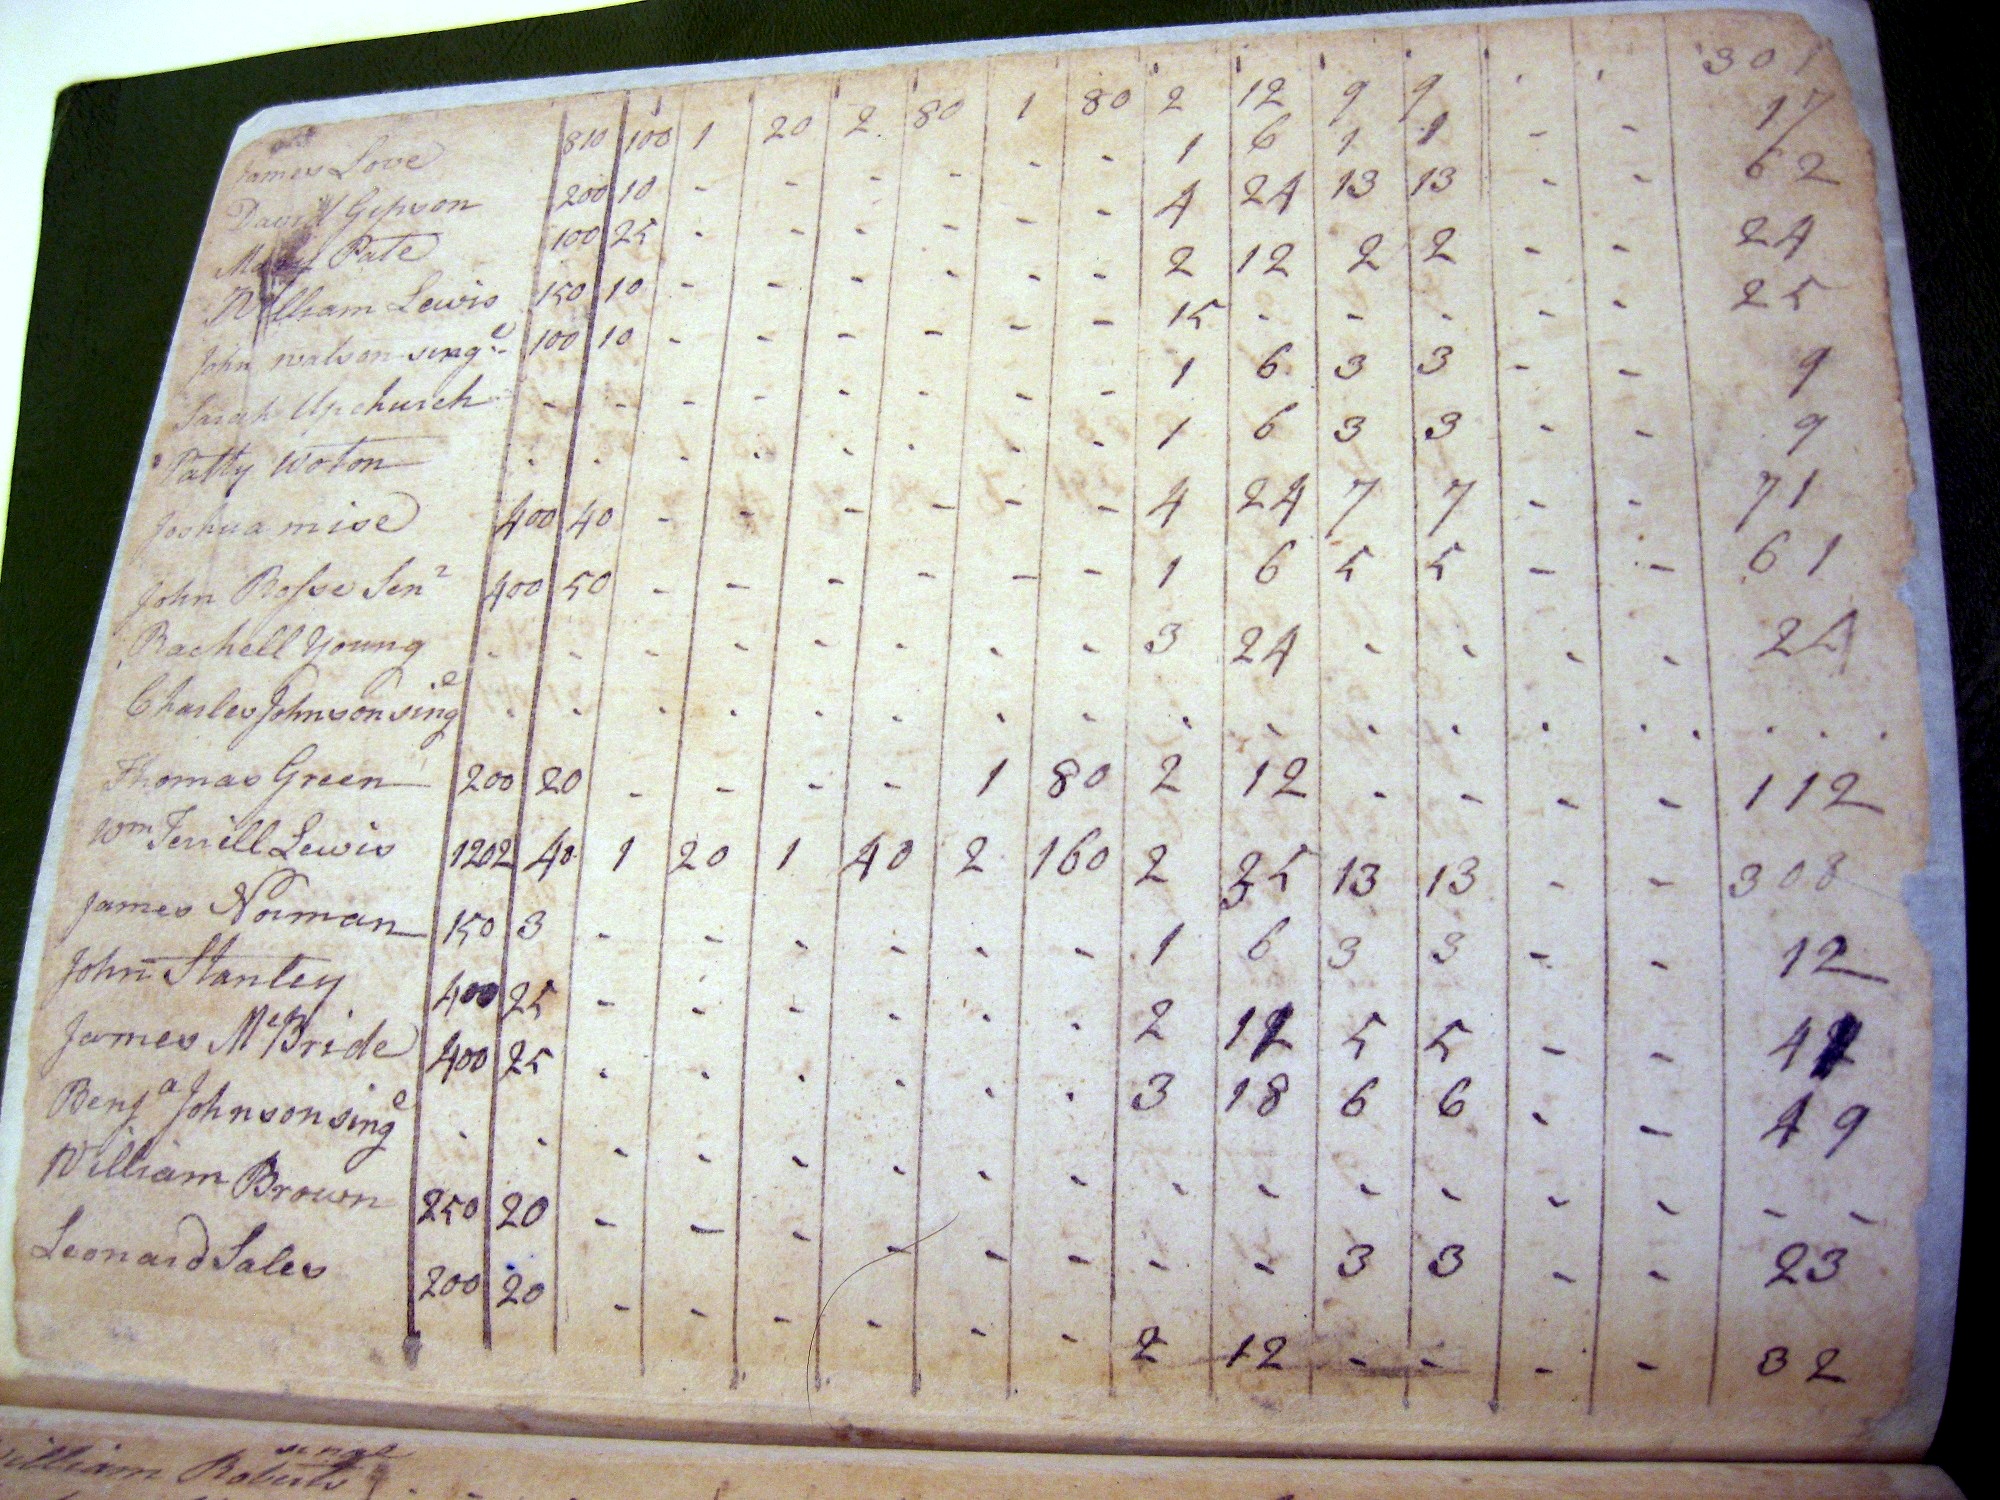 James Love 810 100 1 20 2 80 1 80 2 12 9 9 - - 301
David Gipson 200 10 - - - - - - 1 6 1 1 - - 17
Mary Pate 100 25 - - - - - - 4 24 13 13 - - 62
William Lewis 150 10 - - - - - - 2 12 2 2 - - 24
John Watson singe 100 10 - - - - - - 15 - - - - - 25
Sarah Upchurch - - - - - - - - 1 6 3 3 - - 9
Patty Woton - - - - - - - - 1 6 3 3 - - 9
Joshua mise 400 40 - - - - - - 4 24 7 7 - - 71
John Rosse Senr 400 50 - - - - - - 1 6 5 5 - - 61
Rachell Young - - - - - - - - 3 24 - - - - 24
Charles Johnson singe - - - - - - - - - - - - - - - - -
Thomas Green 200 20 - - - - 1 80 2 12 - - - - 112
Wm Terrill Lewis 1202 40 1 20 1 40 2 160 2 35 13 13 - - 308
James Norman 150 3 - - - - - - 1 6 3 3 - - 12
John Stanley 400 25 - - - - - - 2 12 5 5 - - 42
James McBride 400 25 - - - - - - 3 18 6 6 - - 49
Benja Johnson singe - - - - - - - - - - - - - - - -
William Brown 250 20 - - - - - - - - 3 3 - - 23
Leonard Sales 200 20 - - - - - - 2 12 - - - - 32
single
William Roberts - -